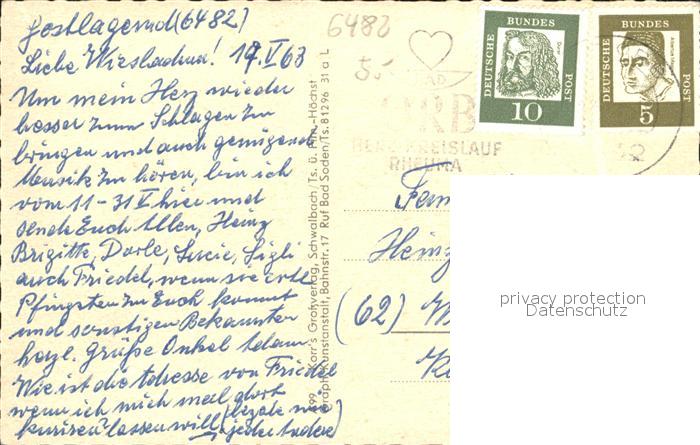 Postlagernd (6482)
Liebe Wiesbadner! 17.V.63
Um mein Herz wieder
besser zum Schlagen zu
bringen und auch genügend
Musik zu hören, bin ich
vom 11-31 V hier und
sende Euch Allen, Heinz
Brigitte, Dorle, Lucie, Sigli
auch Friedel, wenn sie erst
Pfingsten zu Euch kommt
und sonstigen Bekannten
herzl. Grüße Onkel Adam
Wie ist die Adresse von Friedel
wenn ich mich mal dort
kurieren lassen will, (bezahle wie
jeder andere)
6482
5.-
BAD
ORB
HERZ KREISLAUF
RHEUMA
DEUTSCHE BUNDES POST
10
DEUTSCHE BUNDES POST
5
Korr's Großverlag, Schwalbach/Ts. u. Ffm.-Höchst
Graph. Kunstanstalt, Bahnstr. 17 Ruf Bad Soden/Ts. 81296 31 a L
Fam
Heinz
(62) W
privacy protection
Datenschutz